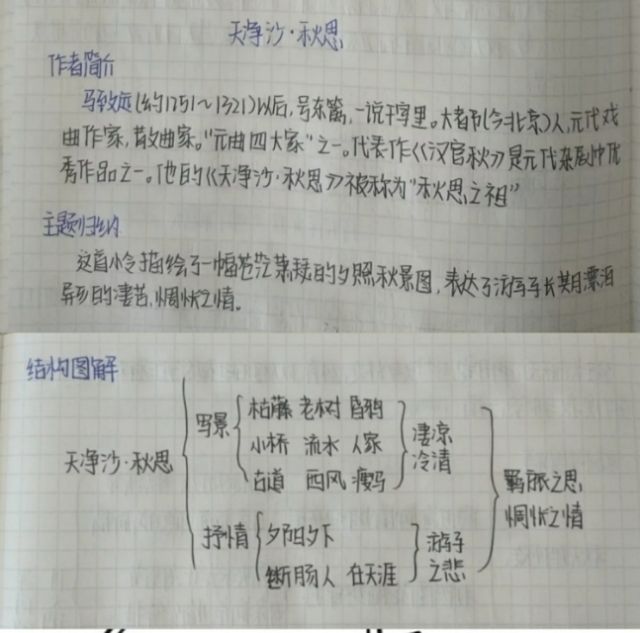 天净沙·秋思
作者简介
马致远(约1251~1321)以后,号东篱,一说字千里。大都(今北京)人,元代戏
曲作家,散曲家。"元曲四大家"之一。代表作《汉宫秋》是元代杂剧中优
秀作品之一。他的《天净沙·秋思》被称为"秋思之祖"
主题归纳
这首小令描绘了一幅苍茫萧瑟的夕照秋景图,表达了游子长期漂泊
异乡的凄苦,惆怅之情。
结构图解
天净沙·秋思
写景
枯藤 老树 昏鸦
小桥 流水 人家
古道 西风 瘦马
凄凉
冷清
抒情
夕阳夕下
断肠人 在天涯
游子
之悲
羁旅之思
惆怅之情